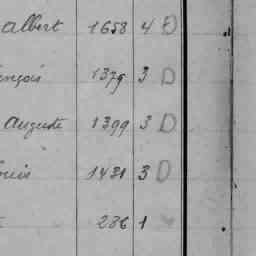 Albert 1658 4 D
ançois 1379 3 D
Auguste 1399 3 D
ouis 1431 3 D
236 1